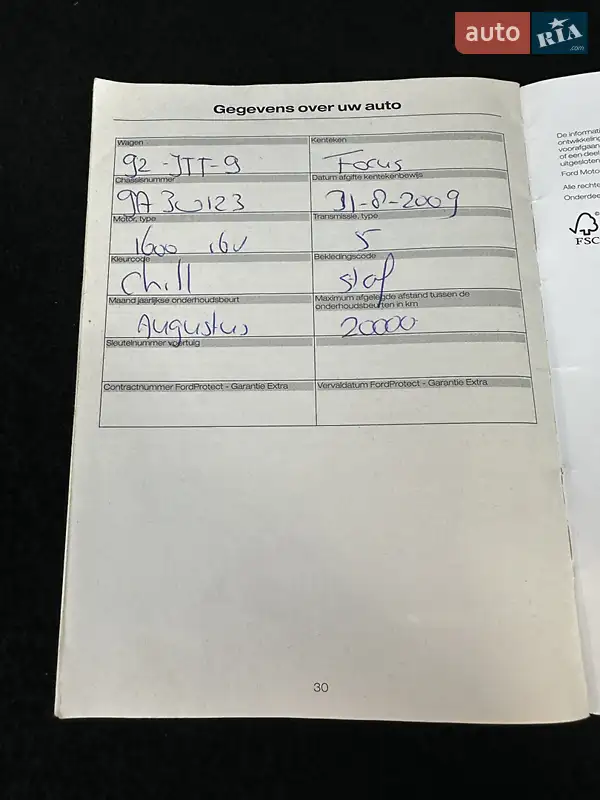 auto RIA .com
Gegevens over uw auto
Wagen Kenteken
92-JTT-9 Focus
Chassisnummer Datum afgifte kentekenbewijs
31-8-2009
Motor, type Transmissie, type
1600 16V 5
Kleurcode Bekledingscode
Chill stof
Maand jaarlijkse onderhoudsbeurt Maximum afgelegde afstand tussen de onderhoudsbeurten in km
Augustus 20000
Sleutelnummer voertuig
Contractnummer FordProtect - Garantie Extra Vervaldatum FordProtect - Garantie Extra
30
De informati
ontwikkeling
voorafgaan
of een deel
uitgesloten
Ford Moto
Alle rechte
Onderdee
FSC